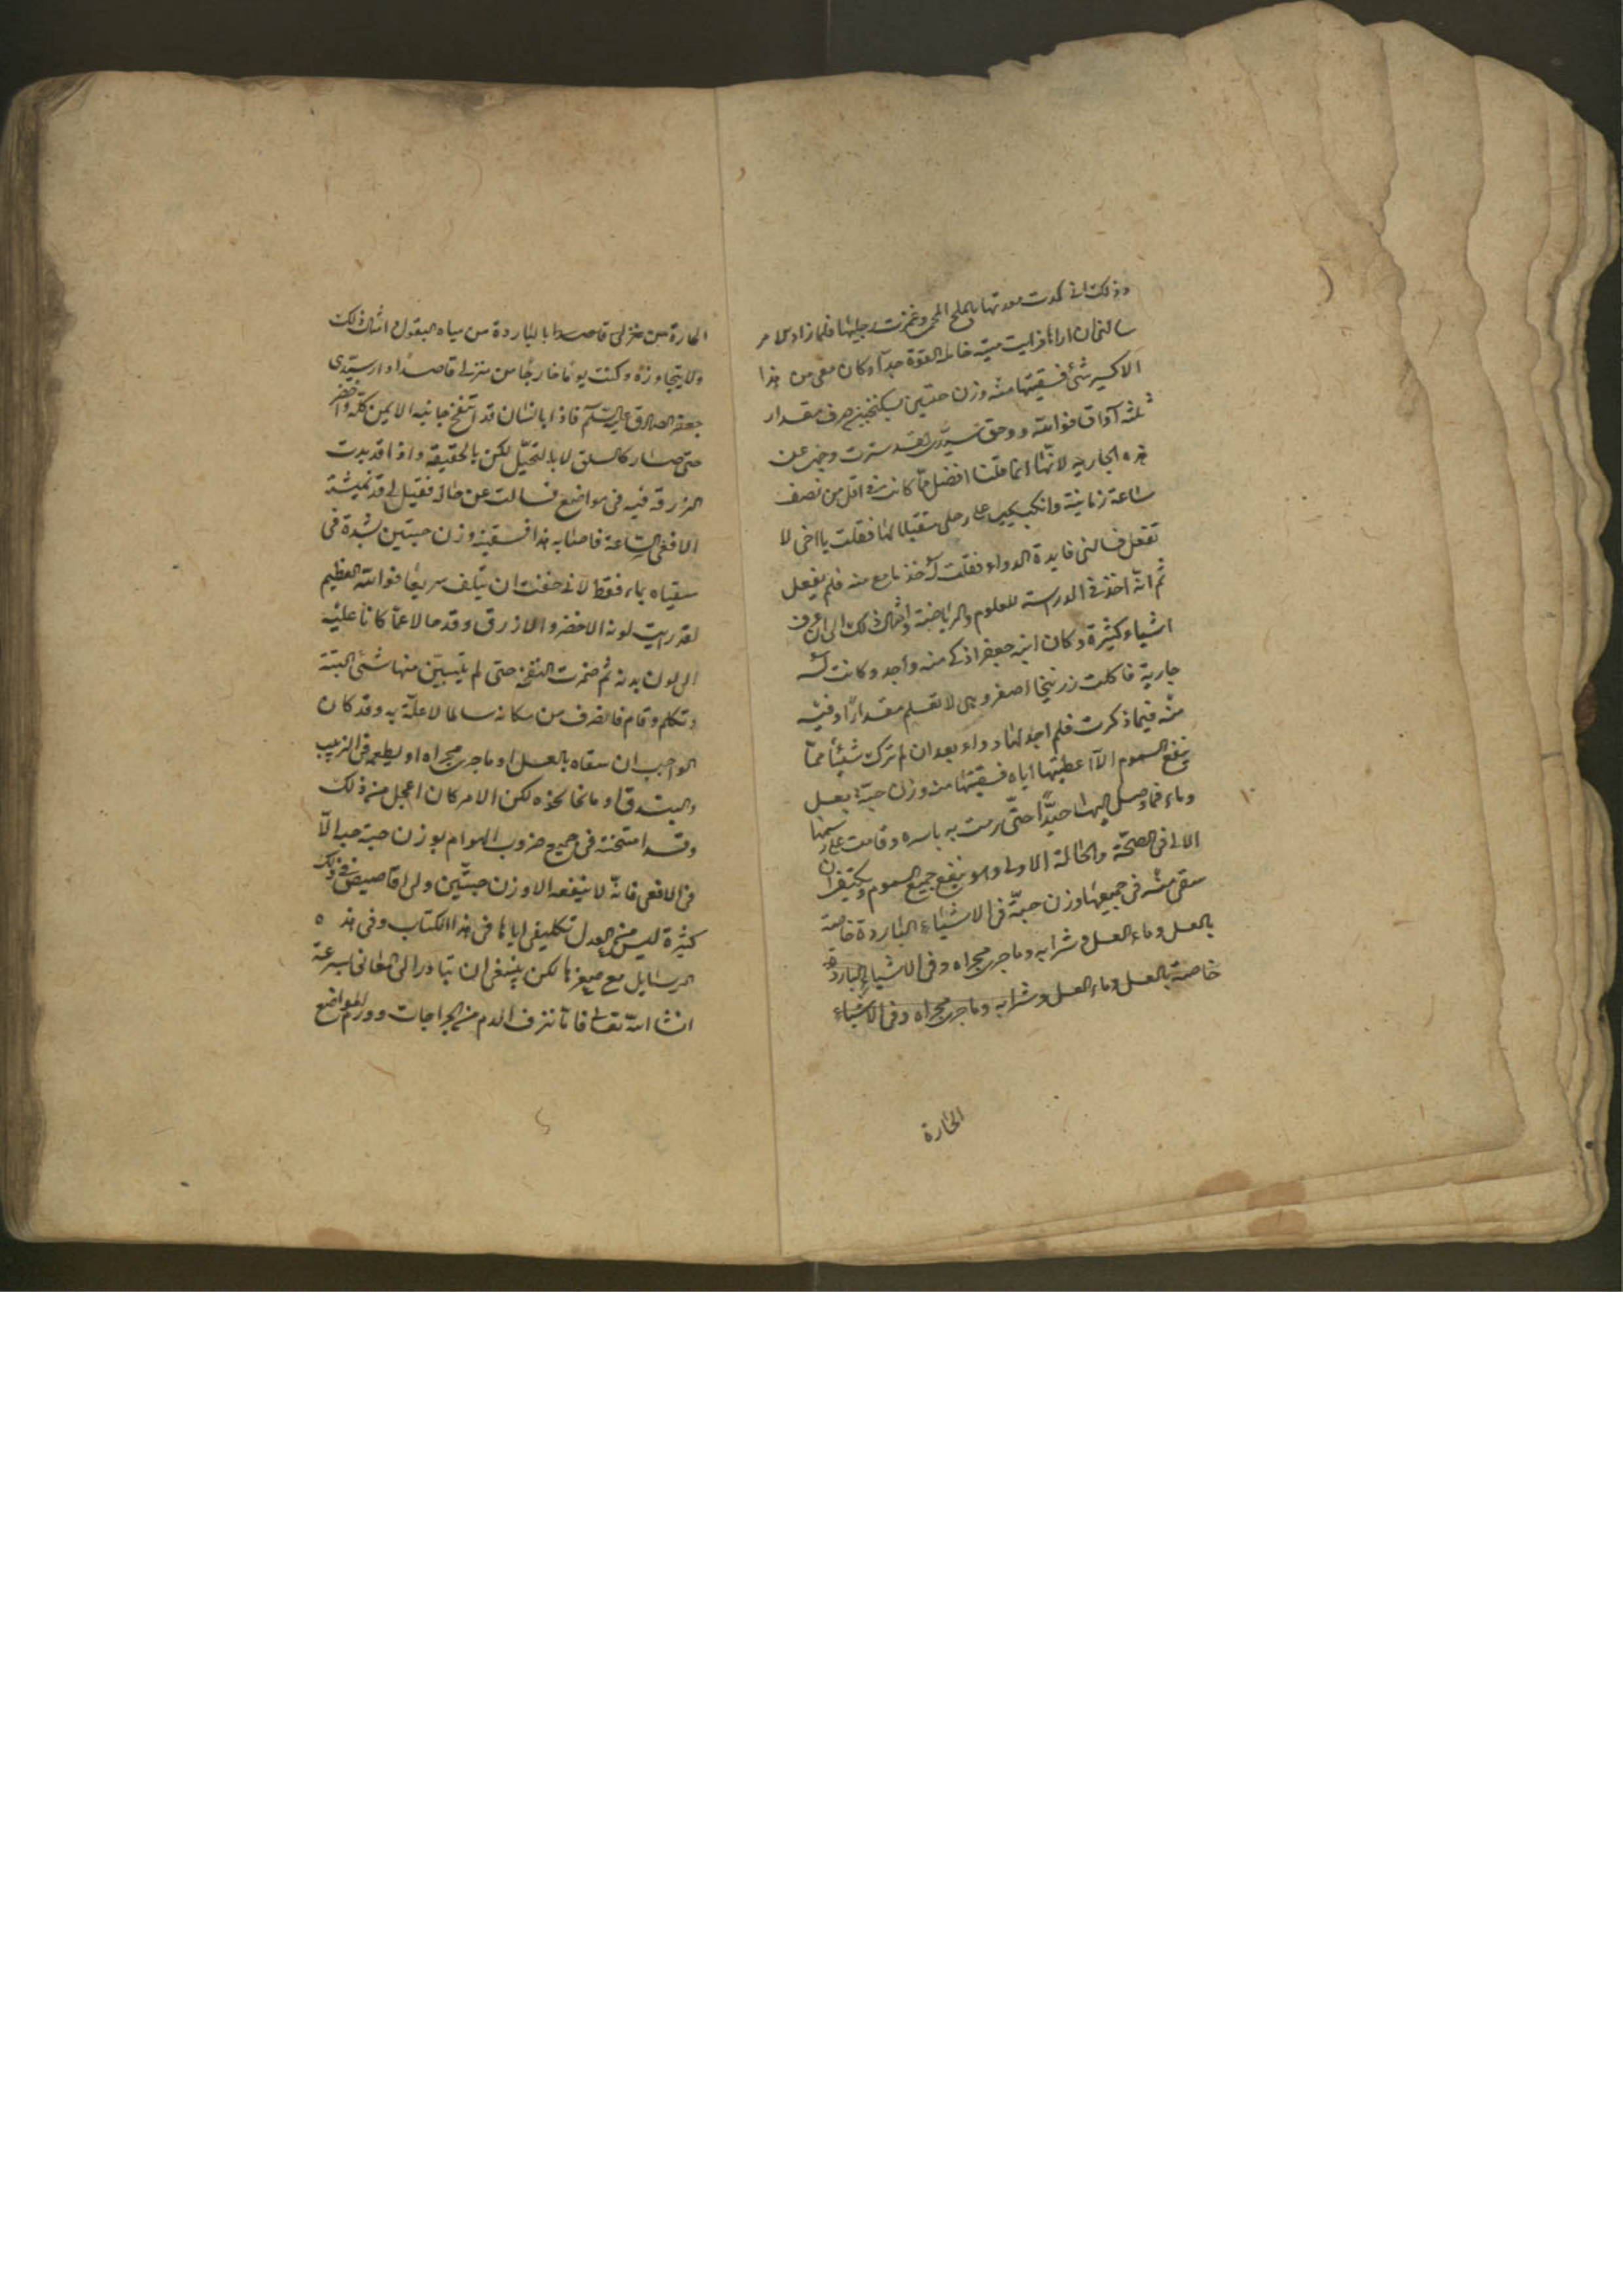 وذلك انى كمدت معدتها بالملح المحمى وغمزت رجليها فلما زاد الامر
سالنى ان اراها فرايت ميتة خاملة القوة جدا وكان معى من هذا
الاكسير شئ فسقيتها منه وزن حبتين بسكنجبين صرف مقدار
ثلثه آواق فوالله ووحق سيدى لقد سترت وجهى عن
هذه الجارية لانها افضل مما كانت فى اقل من نصف
ساعة زمانية وانكب على رجلى مقبلا لها فقلت يا اخى لا
تفعل فسالنى فايدة الدواء فقلت له خذ ما مع منه فلم يفعل
ثم انه اخذ فى الدراسة للعلوم والرياضة وامثال ذلك الى ان عرف
اشياء كثيرة وكان ابنه جعفر اذكى منه واجد وكانت له
جارية فاكلت زرنيخا اصفر وهى لا تعلم مقدار اوقية
منه فيما ذكرت فلم اجد لها دواء بعد ان لم اترك شيئا مما
ينفع السموم الا اعطيتها اياه فسقيتها منه وزن حبة بعسل
وماء فما وصل اليها جيدا حتى رمت به باسره وقامت على رسمها
الاول فى الصحة والحالة الاولى وهو ينفع جميع السموم ويكتفى ان
سقى منه فى جميعها وزن حبة فى الاشياء الباردة خاصة
بالعسل وماء العسل وشرابه وما جرى مجراه وفى الاشياء الباردة
خاصة بالعسل وماء العسل وشرابه وما جرى مجراه وفى الاشياء
الحارة
الحارة من منزلى قاصدا بالباردة من مياه البقول امثال ذلك
ولا يتجاوزه وكنت يوما خارجا من منزلى قاصدا دار سيدى
جعفر الصادق عليه السلام فاذا بانسان قد انتفخ جانبه الايمن كله واخضر
حتى صار كالسلق لا بالتخيل لكن بالحقيقة واذا قد بدت
الزرقة فيه فى مواضع فسالت عن حاله فقيل لى قد نهشته
الافعى الساعة فاصابه هذا فسقيته وزن حبتين بشدة فى
سقياه بماء فقط لانى خفت ان يتلف سريعا فوالله العظيم
لقد رايت لونه الاخضر والازرق وقد حالا عما كانا عليه
الى لون بدنه ثم ضمرت النفخة حتى لم يتبين منها شئ البتة
وتكلم وقام فانصرف من مكانه سالما لا علة به وقد كان
الواجب ان سقاه بالعسل او ما جرى مجراه او يطعمه فى الزبيب
والبندق او ما نحا نحوه لكن الامر كان اعجل من ذلك
وقد امتحنته فى جميع ضروب الهوام بوزن حبة حبة الا
فى الافعى فانه لا ينفعه الا وزن حبتين ولى اقاصيص فى ذلك
كثيرة ليس من العدل تكليفى اياها فى هذا الكتاب وفى هذه
الرسايل مع صغرها لكن ينبغى ان تبادر الى المعانى بسرعة
انشا الله تعالى فاما نزف الدم من الجراحات وورم المواضع